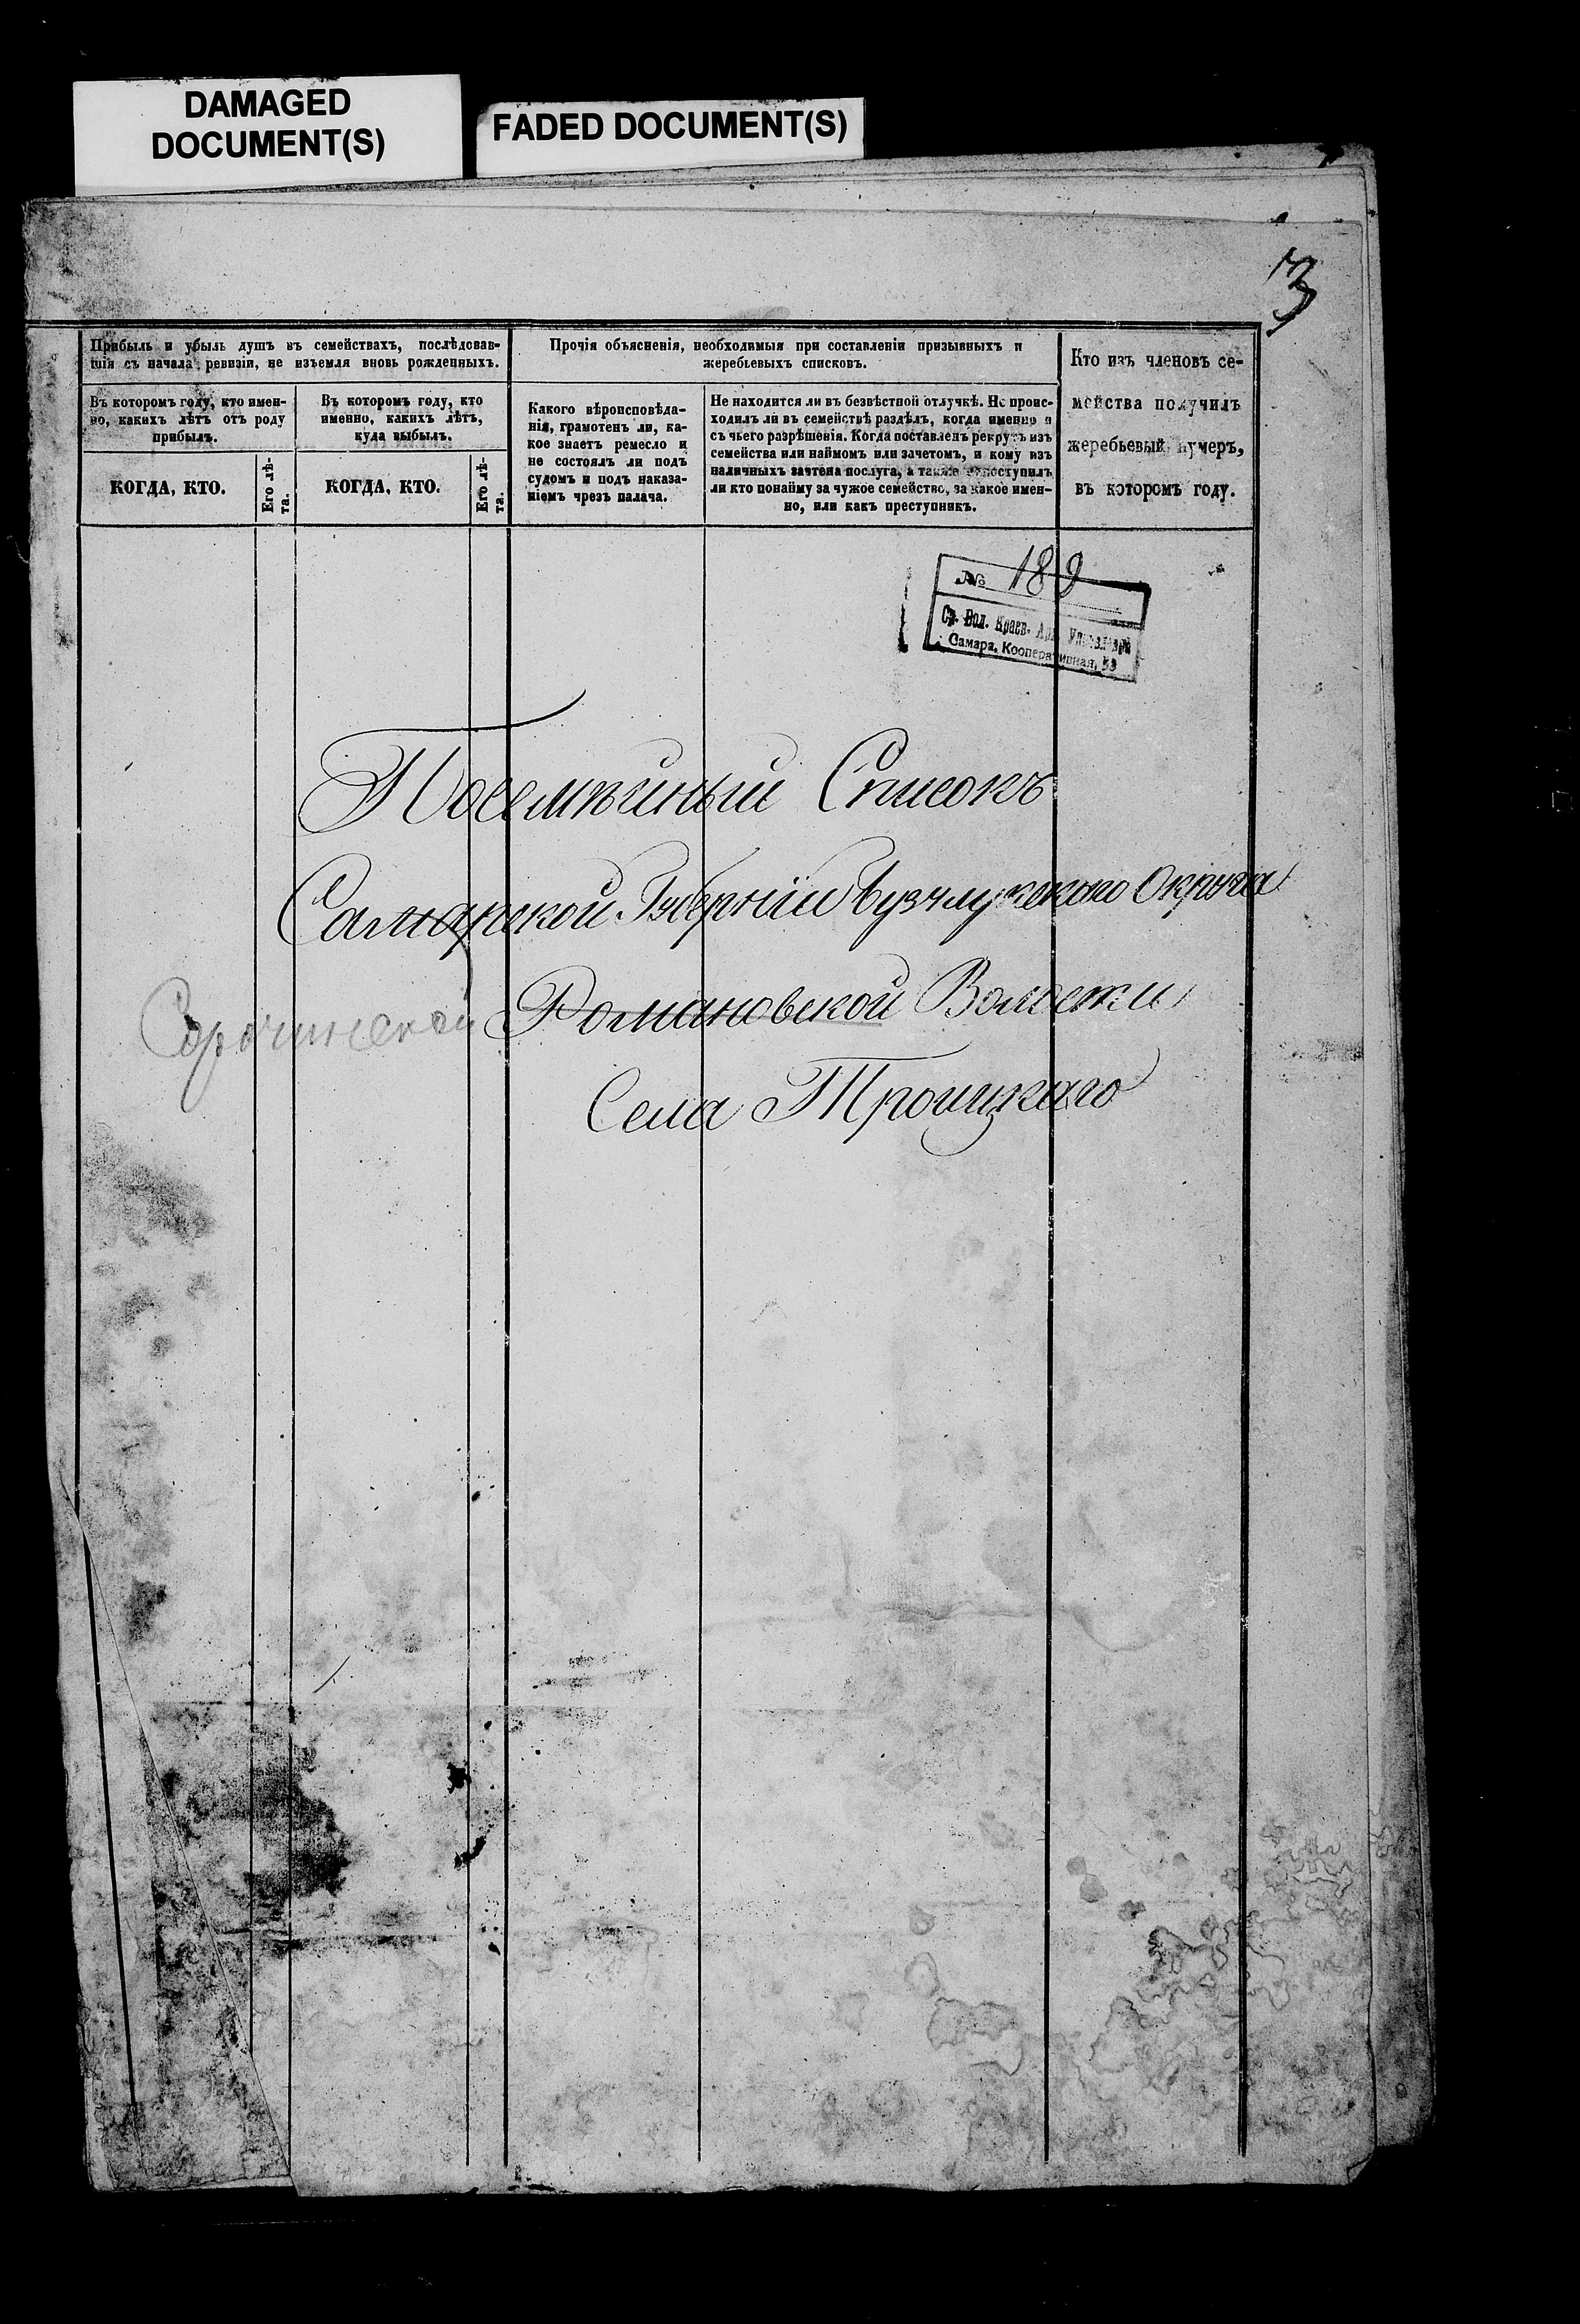 DAMAGED
DOCUMENT(S)
FADED DOCUMENT(S)
3
Прибыль и убыль душъ въ семействахъ, послѣдовав-
шія съ начала ревизіи, не изъемля вновь рожденныхъ.
Въ которомъ году, кто имен-
но, какихъ лѣтъ отъ роду
прибылъ.
КОГДА, КТО.
Его лѣ-
та.
Въ которомъ году, кто
именно, какихъ лѣтъ,
куда выбылъ.
КОГДА, КТО.
Его лѣ-
та.
Прочія объясненія, необходимыя при составленіи призывныхъ и
жеребьевыхъ списковъ.
Какого вѣроисповѣда-
нія, грамотенъ ли, ка-
кое знаетъ ремесло и
не состоялъ ли подъ
судомъ и подъ наказа-
ніемъ чрезъ палача.
Не находится ли въ безвѣстной отлучкѣ. Не проис-
ходилъ ли въ семействѣ раздѣлъ, когда именно и
съ чьего разрѣшенія. Когда поставленъ рекрутъ изъ
семейства или наймомъ или зачетомъ, и кому изъ
наличныхъ зачтена послуга, а также поступилъ
ли кто понайму за чужое семейство, за какое имен-
но, или какъ преступникъ.
Кто изъ членовъ се-
мейства получилъ
жеребьевый нумеръ,
въ которомъ году.
№ 189
Ср. Вол. Краев. Арх.
Самара, Кооперативная, 53
Посемѣйный Списокъ
Самарской Губерніи Бузулукскаго Округа
Сорочинской Романовской Волости
Села Троицкаго